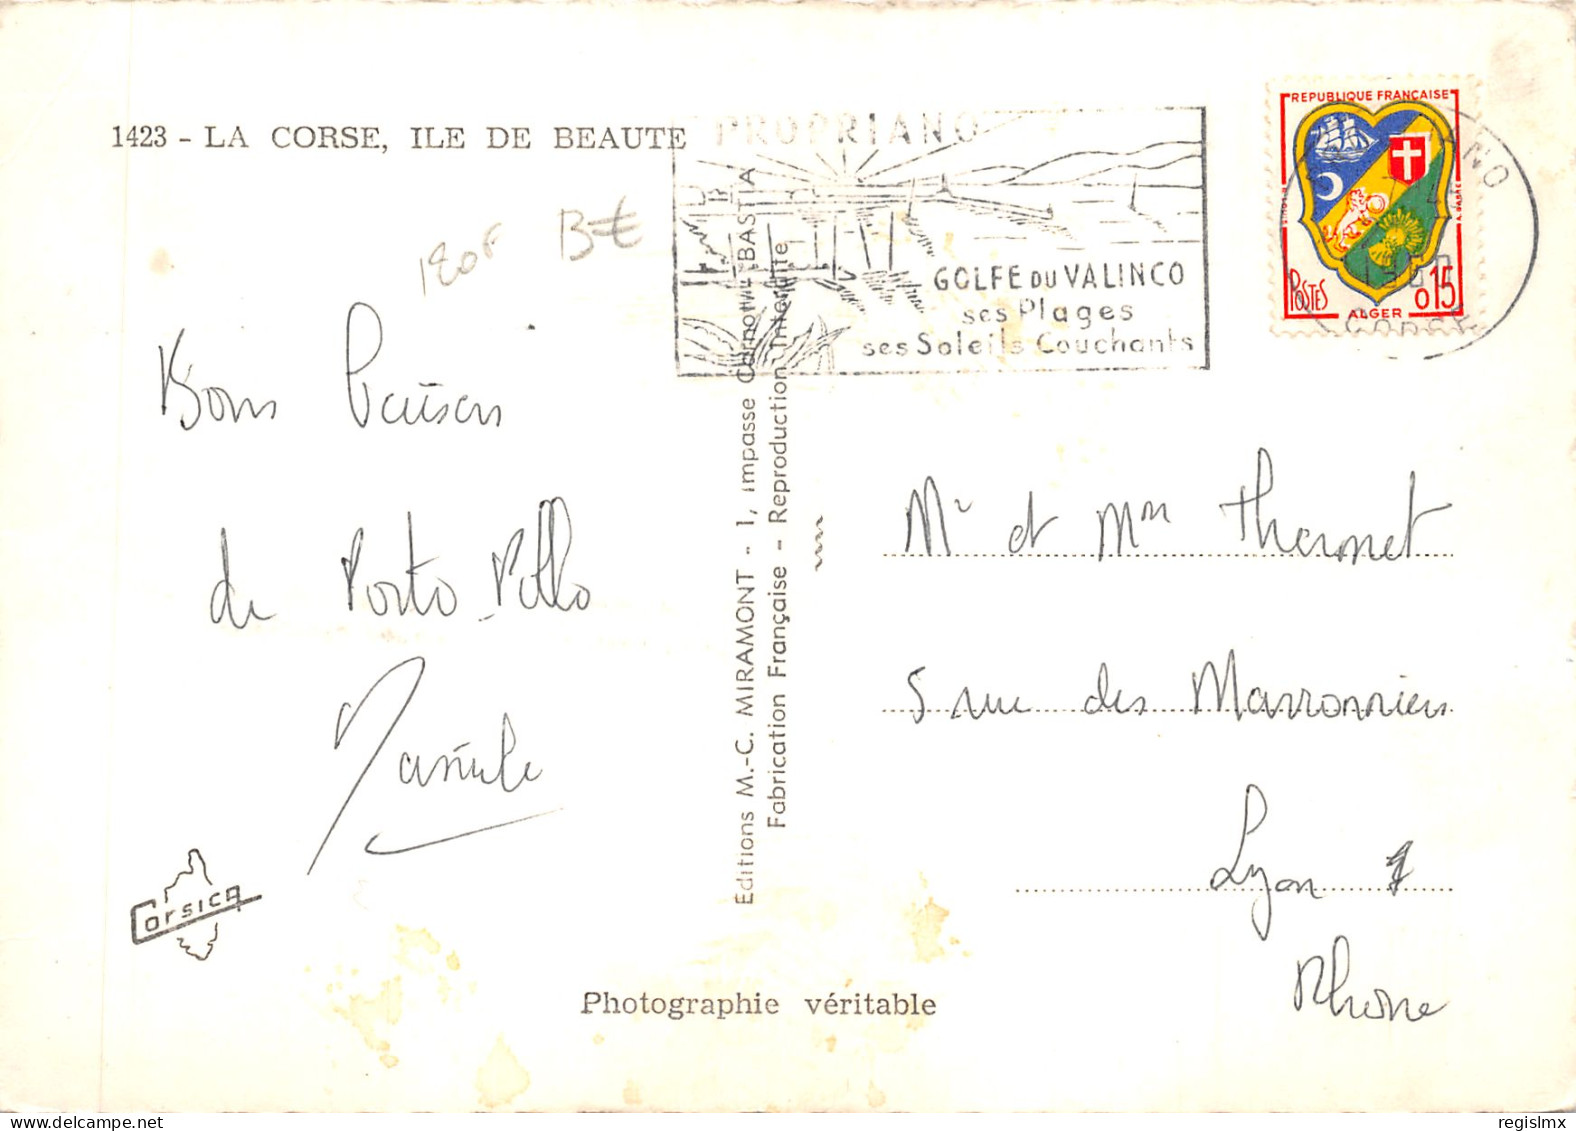 1423 - LA CORSE, ILE DE BEAUTE
PROPRIANO
GOLFE DU VALINCO
ses Plages
ses Soleils Couchants
REPUBLIQUE FRANÇAISE
POSTES
0,15
ALGER
CORSE
180F
Bons Baisers
de Porto-Pollo
Mr et Mm Thermet
5 rue des Marronniers
Lyon
Rhone
Editions M.-C. MIRAMONT - 1, Impasse Carnot - BASTIA
Fabrication Française - Reproduction Interdite
Corsica
Photographie véritable
regislmx